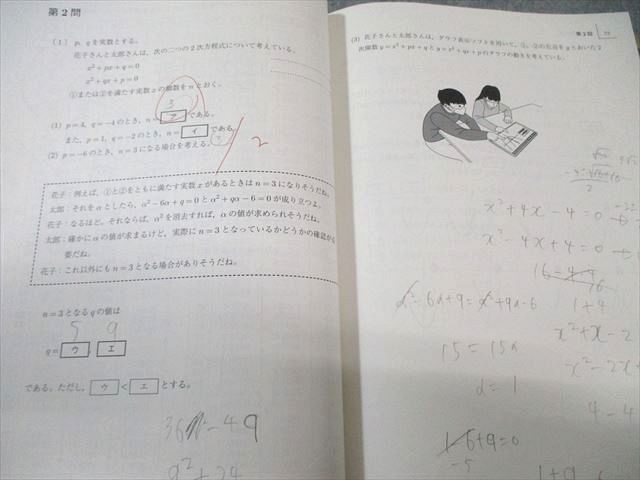 第2問
〔1〕 p, qを実数とする。
花子さんと太郎さんは，次の二つの2次方程式について考えている。
x²+px+q=0
x²+qx+p=0
①または②を満たす実数xの個数をnとおく。
3
(1) p=4, q=-4のとき，n=アである。
また，p=1, q=-2のとき，n=イである。
3
2
(2) p=-6のとき，n=3になる場合を考える。
花子：例えば，①と②をともに満たす実数xがあるときはn=3になりそうだね。
太郎：それをαとしたら，α²-6α+q=0とα²+qα-6=0が成り立つよ。
花子：なるほど。それならば，α²を消去すれば，αの値が求められそうだね。
太郎：確かにαの値が求まるけど，実際にn=3となっているかどうかの確認が必
要だね。
花子：これ以外にもn=3となる場合がありそうだね。
n=3となるqの値は
5 9
q=ウ, エ
である。ただし，ウ<エとする。
36-4q
q²+24
第2回
(3) 花子さんと太郎さんは，グラフ表示ソフトを用いて，①，②の左辺をyとおいた2
次関数y=x²+px+qとy=x²+qx+pのグラフの動きを考えている。
x²+4x-4=0
x²-4x+4=0
α²-6α+q=α²+qα-6
1+9
x²+x-2
15=15α
α=1
4-4
1-6+q=0
-5